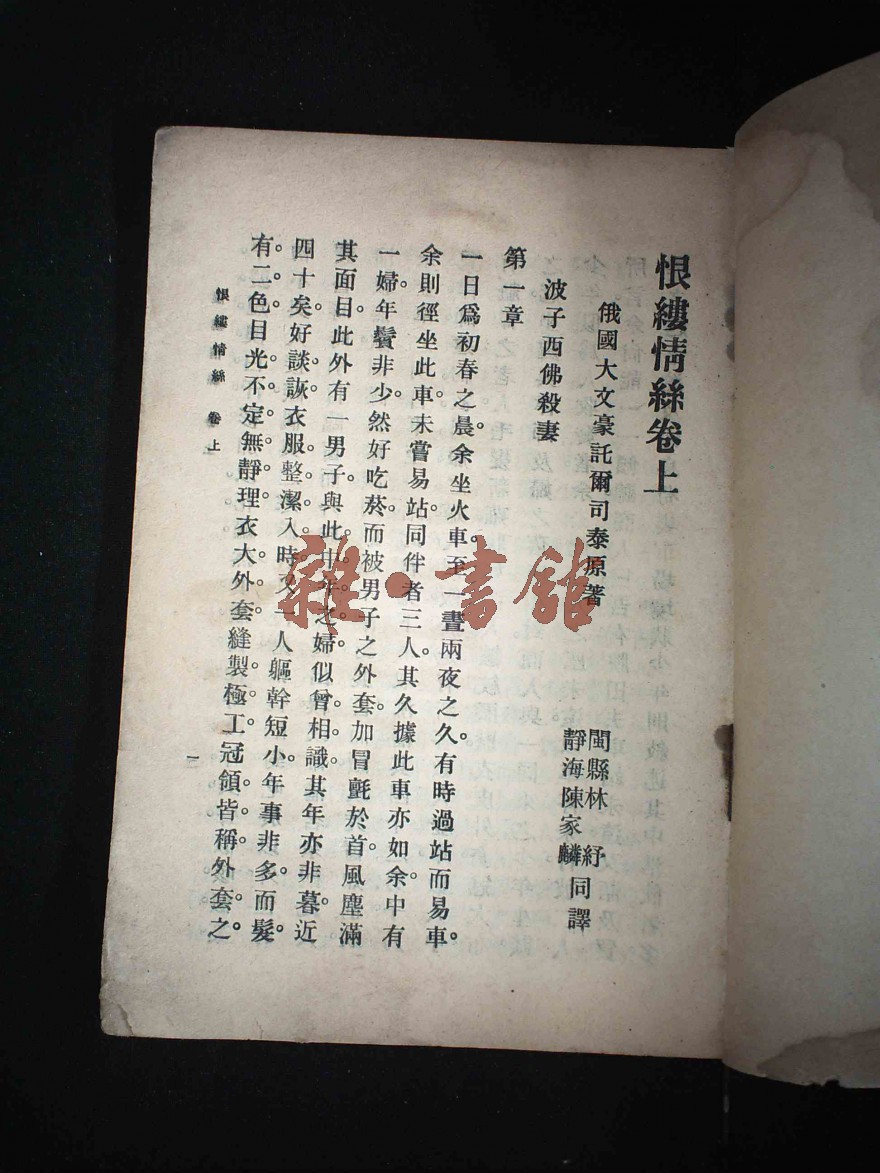 恨縷情絲卷上
俄國大文豪託爾司泰原著
閩縣林 紓
靜海陳家麟
同譯
波子西佛殺妻
第一章
一日爲初春之晨。余坐火車。至一晝兩夜之久。有時過站而易車。
余則徑坐此車。未嘗易站。同伴者三人。其久據此車亦如余。中有
一婦。年鬢非少。然好吃菸。而被男子之外套。加冒氈於首。風塵滿
其面目。此外有一男子。與此中年之婦似曾相識。其年亦非暮。近
四十矣。好談詼。衣服整潔入時。又一人軀幹短小。年事非多。而髮
有二色。目光不定。無靜理。衣大外套。縫製極工。冠領皆稱。外套之
恨縷情絲 卷上
一
雜·書館